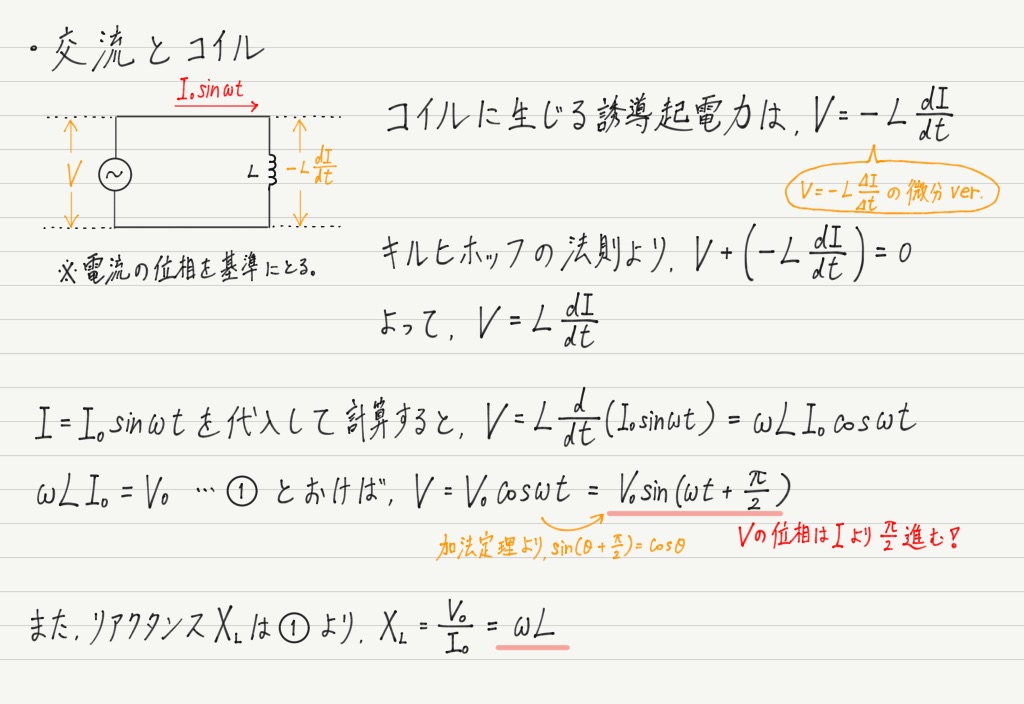 ・交流とコイル
I₀sinωt
V
L
-L dI/dt
※電流の位相を基準にとる。
コイルに生じる誘導起電力は, V = -L dI/dt
V = -L ΔI/Δt の微分ver.
キルヒホッフの法則より, V + (-L dI/dt) = 0
よって, V = L dI/dt
I = I₀sinωt を代入して計算すると, V = L d/dt (I₀sinωt) = ωLI₀cosωt
ωLI₀ = V₀ … ① とおけば, V = V₀cosωt = V₀sin(ωt + π/2)
加法定理より, sin(θ + π/2) = cosθ
Vの位相はIより π/2 進む！
また, リアクタンス X_L は ① より, X_L = V₀/I₀ = ωL